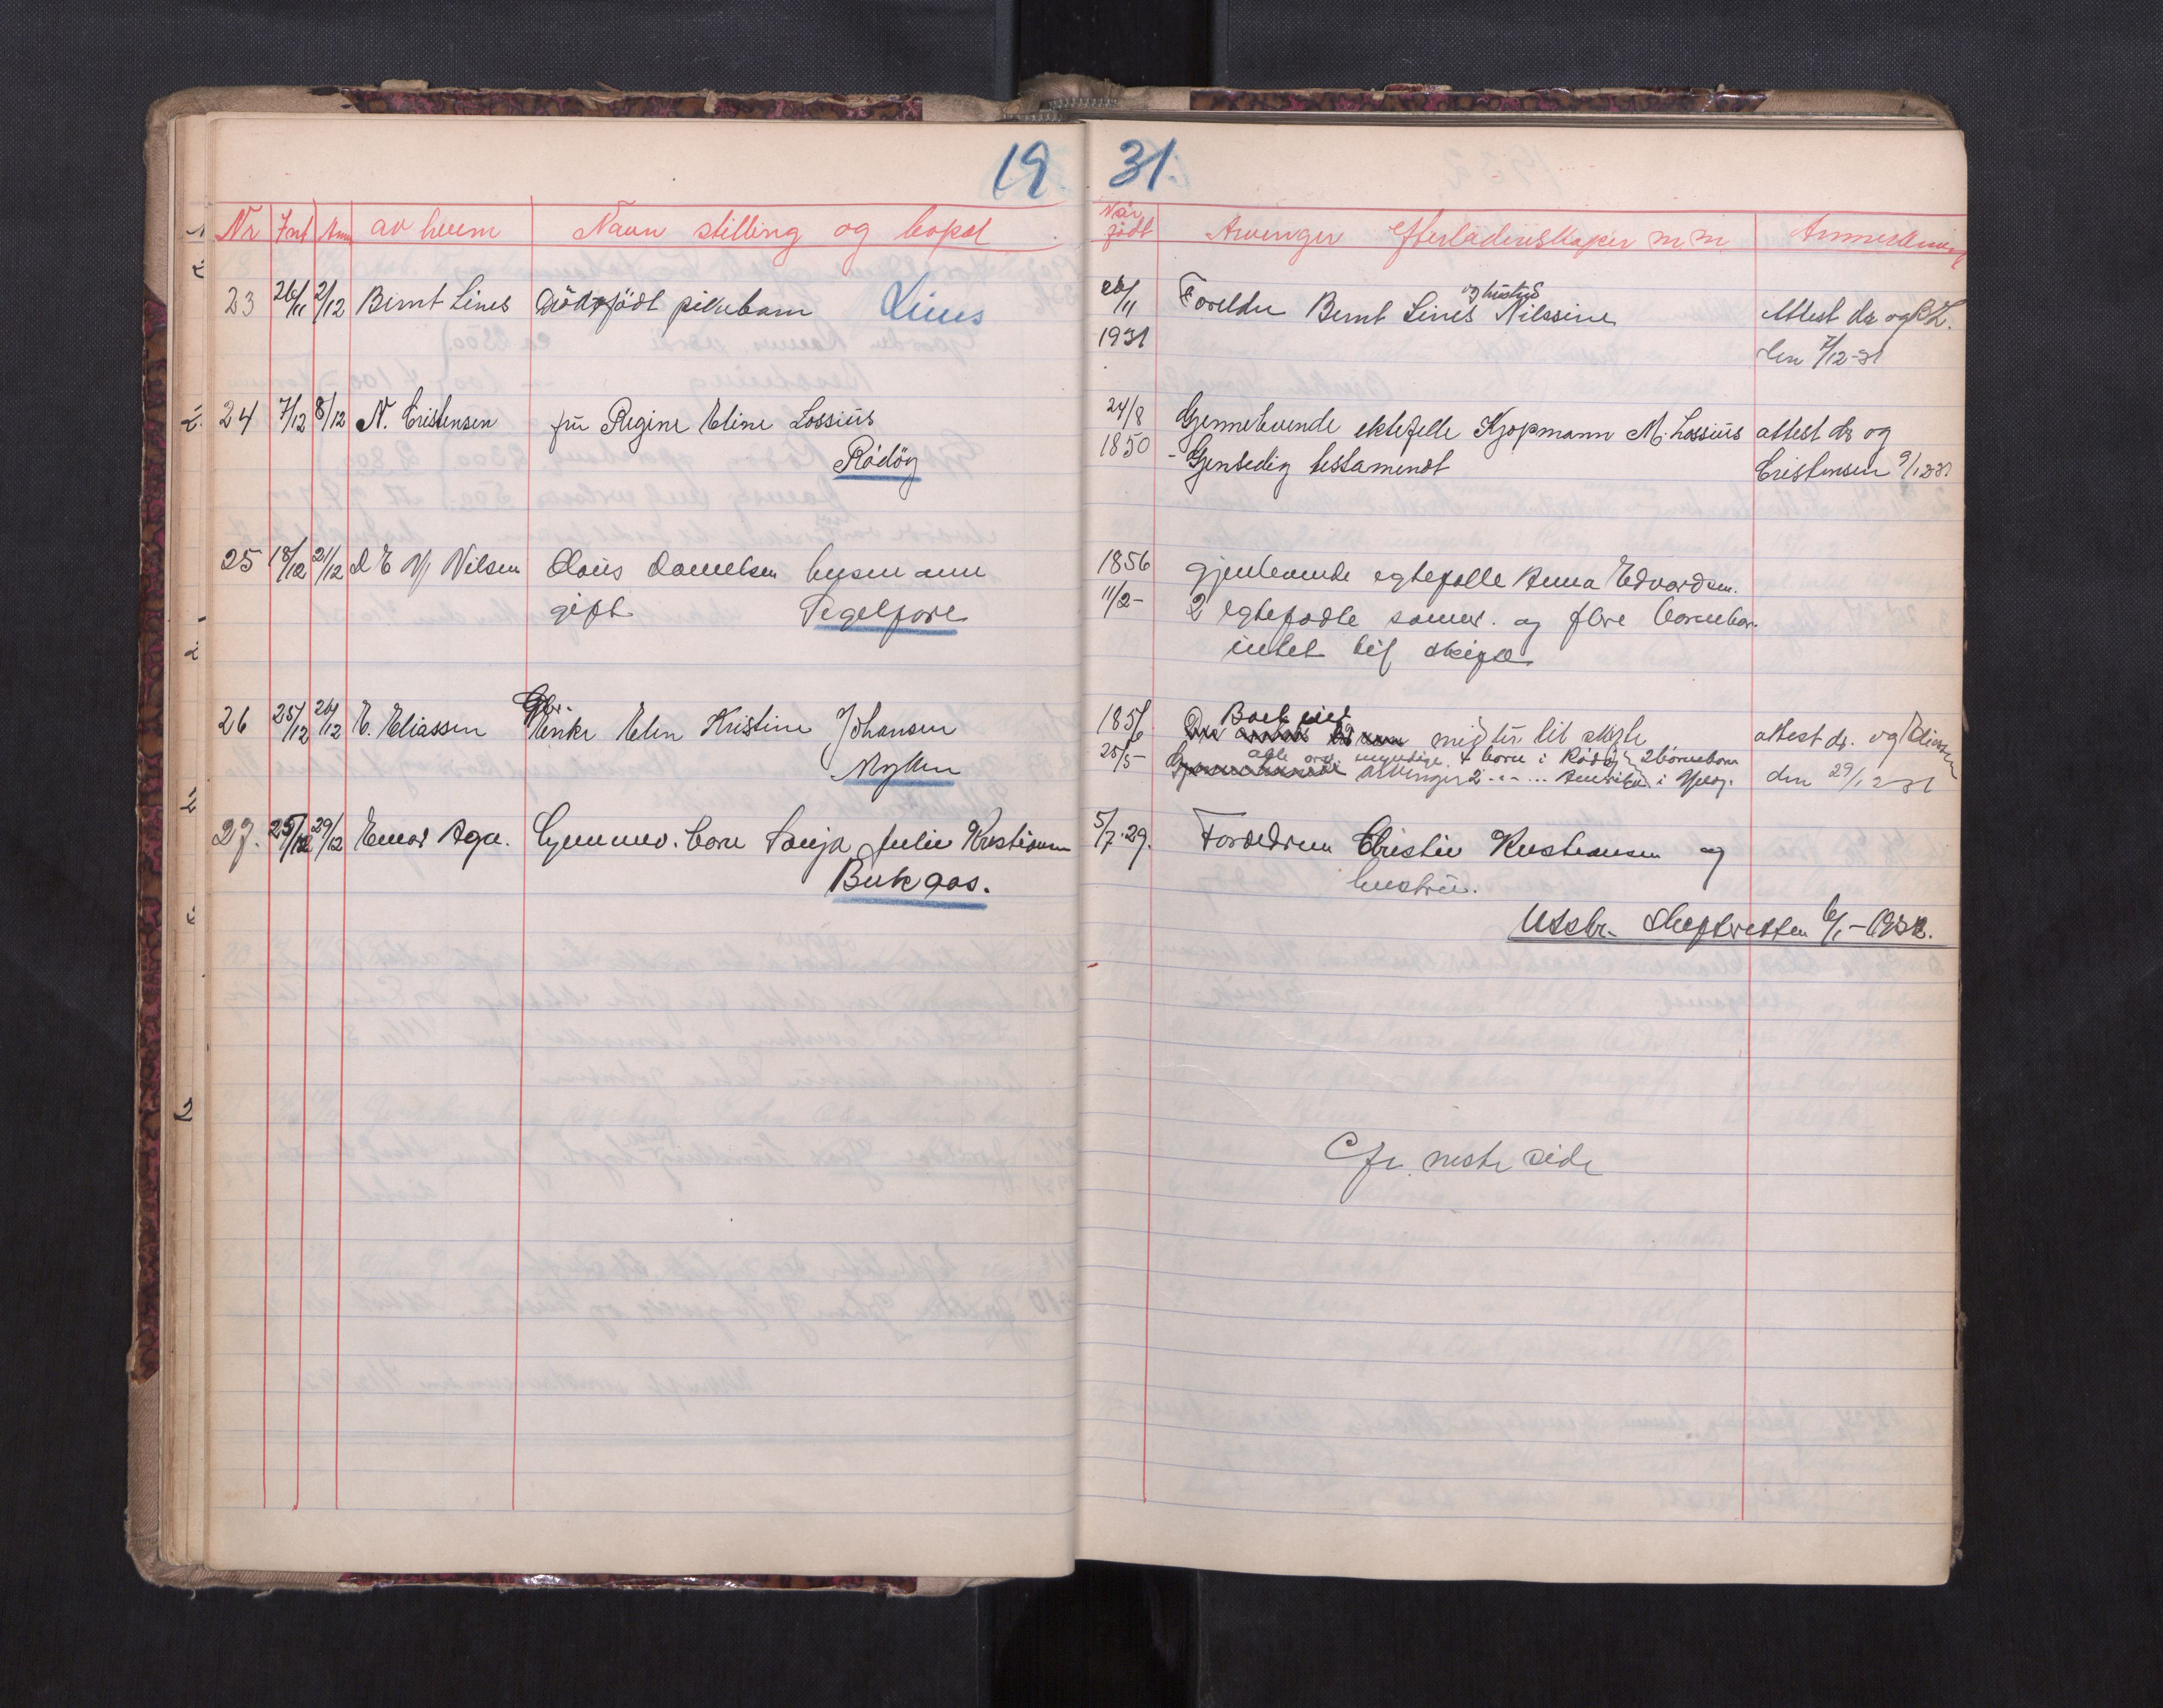 19 31.
Nr av hvem Navn stilling og bopæl
Når født Arvinger Efterladenskaper m.m.
23 26/11 2/12 Bernt Lines Dödsfödt pikebarn Lines
26/11 1931 Foreldre Bernt Lines og hustru Nilssine
Attest dr og
den 7/12-31
24 7/12 8/12 N. Cristensen frü Regine Eline Lossiüs
Rödöy
24/8 1850 Gjennelevende ektefelle Kjøpmann M. Lossiüs
- Gjensedig testamendt
attest dr og
Cristensen 9/12 31
25 18/12 21/12 Nilsen Claüs Danielsen
gift Segelfore
1856 gjenlevende egtefelle Anna Edvardsen.
11/2- 2 egtefødte sønner. og flere barnebar.
intet til skifte
26 25/12 26/12 E. Eliassen
Enke Elen Kristine Johansen
Myken
25/5- arvinger 4 born i Rödöy 2 börneborn
attest dr. og Eliassen
den 29/12 31
27. 25/12 29/12 Einar Aga. Barn Sonja Julie Kristiansen
Bukaos.
5/7-29. Foreldrene Christin Kristiansen og
hustrü.
Utskr. Skifteretten 6/1-1932.
Cfr. neste side